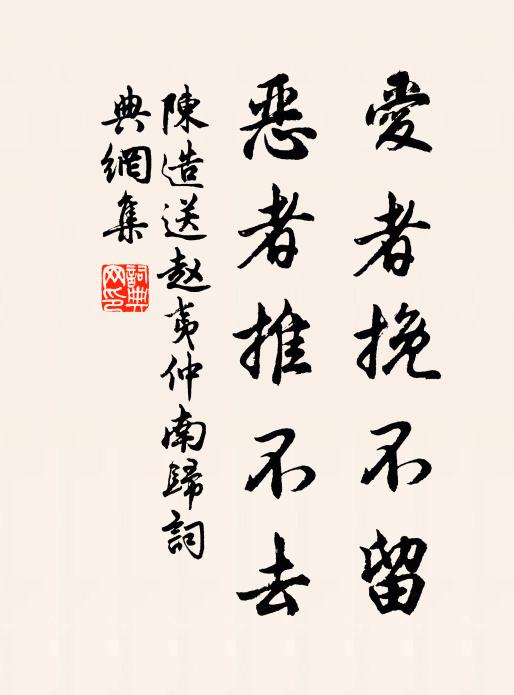 愛者挽不留
惡者推不去
陳造送赵夷仲南歸詞
典網集
詞典
网印